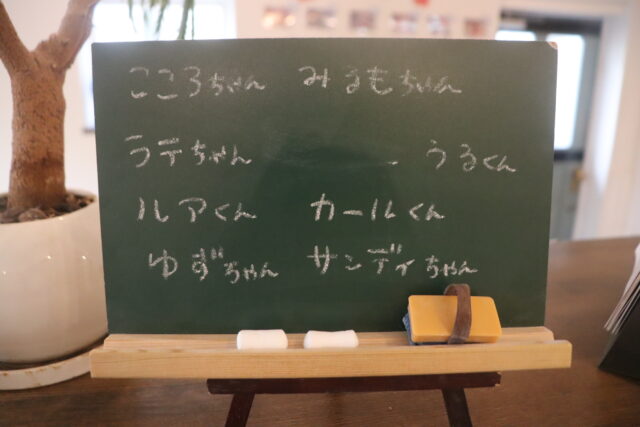 こころちゃん みるもちゃん
ラテちゃん うるくん
ルアくん カールくん
ゆずちゃん サンディちゃん